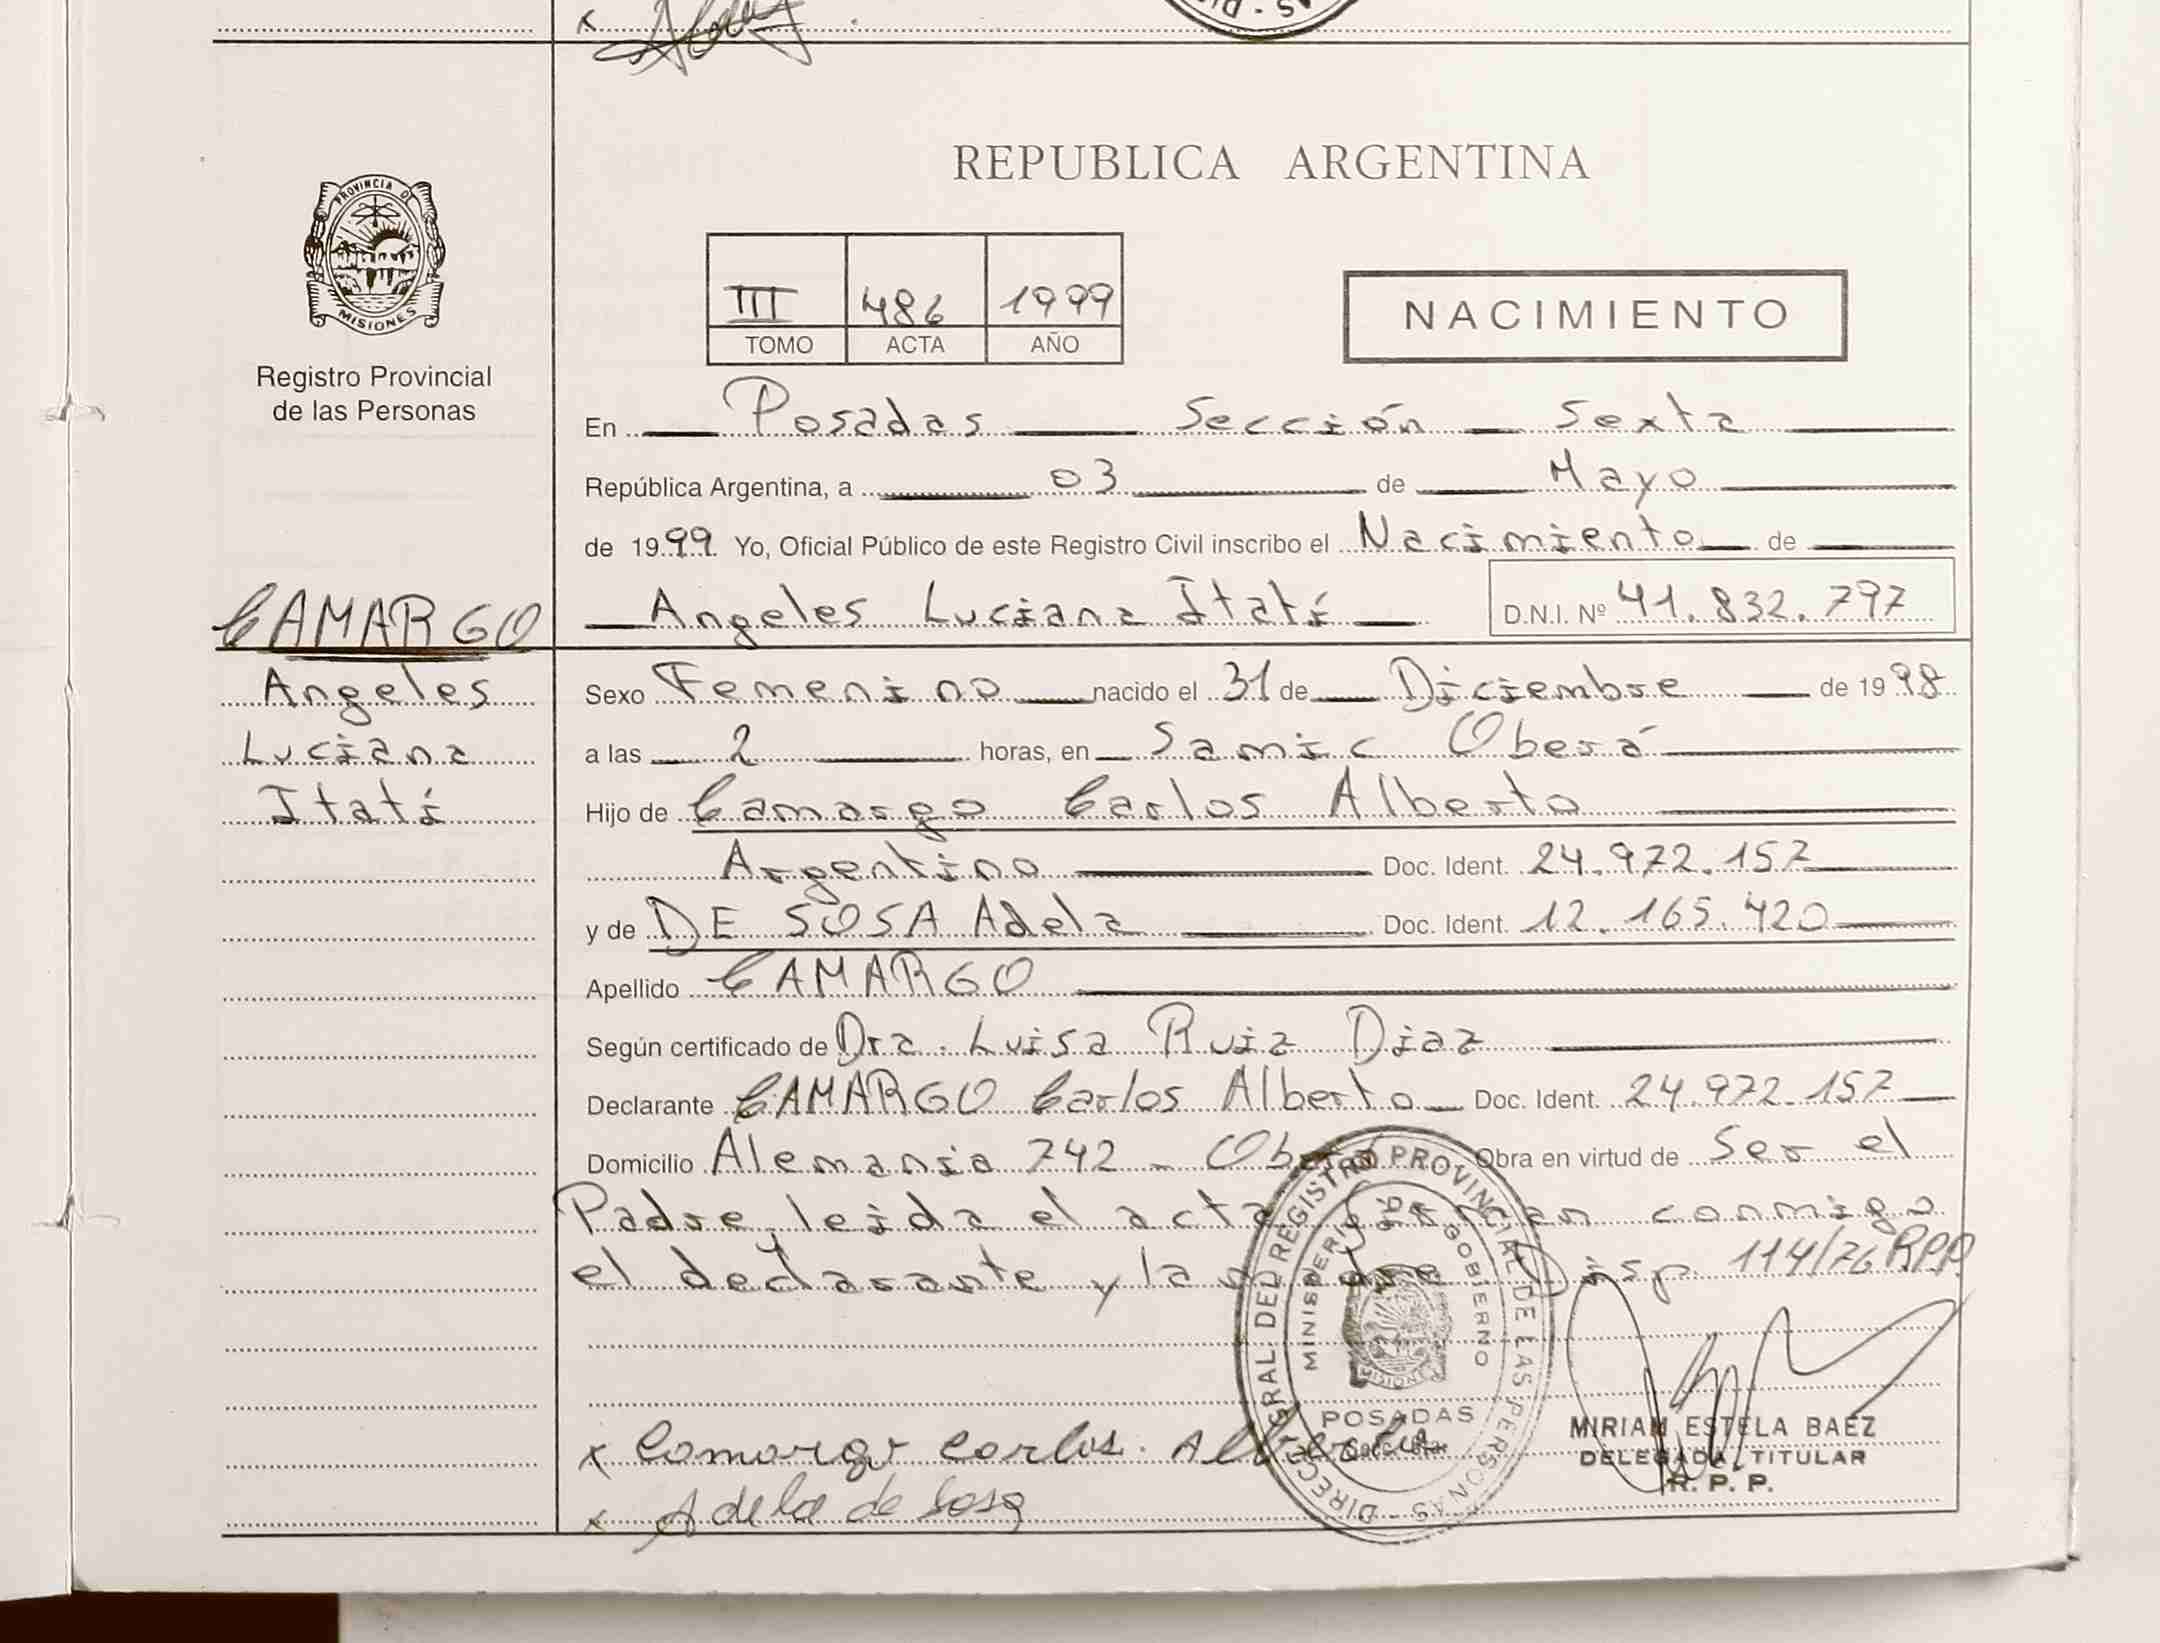 REPUBLICA ARGENTINA
PROVINCIA DE
MISIONES
Registro Provincial
de las Personas
III 486 1999
TOMO ACTA AÑO
NACIMIENTO
En Posadas Sección Sexta
República Argentina, a 03 de Mayo
de 1999 Yo, Oficial Público de este Registro Civil inscribo el Nacimiento de
CAMARGO
Angeles
Luciana
Itatí
Angeles Luciana Itatí D.N.I. Nº 41.832.797
Sexo Femenino nacido el 31 de Diciembre de 1998
a las 2 horas, en Samic Oberá
Hijo de Camargo Carlos Alberto
Argentino Doc. Ident. 24.972.157
y de DE SOSA Adela Doc. Ident. 12.165.420
Apellido CAMARGO
Según certificado de Dra. Luisa Ruiz Diaz
Declarante CAMARGO Carlos Alberto Doc. Ident. 24.972.157
Domicilio Alemania 742 - Oberá Obra en virtud de Ser el
Padre, leida el acta firman conmigo
el declarante y la madre Disp 114/76 RPP
DIRECC. GRAL. DEL REGISTRO PROVINCIAL DE LAS PERSONAS
MINISTERIO DE GOBIERNO
MISIONES
POSADAS
MIRIAM ESTELA BAEZ
DELEGADA TITULAR
R. P. P.
x Camargo Carlos Alberto
x Adela de Sosa